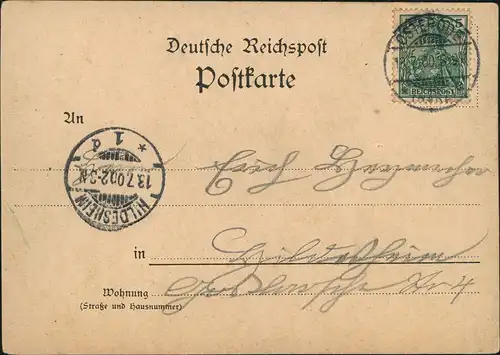 Deutsche Reichspost
Postkarte
5
REICHSPOST
An
Erich
HILDESHEIM
13.7.00.2-3N
* 1 d
in Hildesheim
Wohnung
(Straße und Hausnummer)
Nr 4